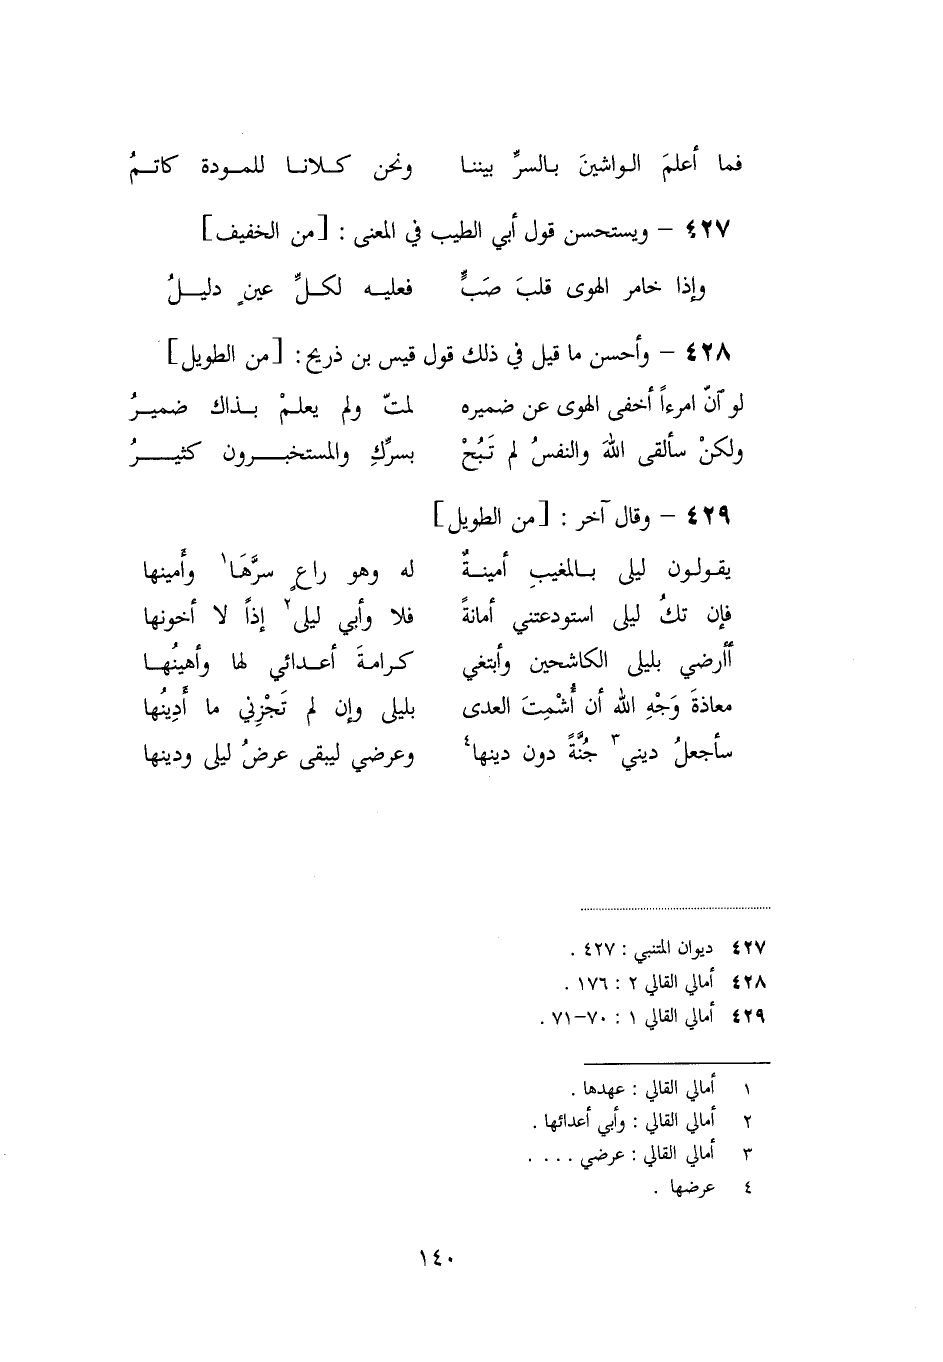 فما أعلمَ الواشينَ بالسرِّ بيننا ونحن كلانا للمودة كاتمُ
٤٢٧ – ويستحسن قول أبي الطيب في المعنى : [من الخفيف]
وإذا خامر الهوى قلبَ صَبٍّ فعليه لكلِّ عينٍ دليلُ
٤٢٨ – وأحسن ما قيل في ذلك قول قيس بن ذريح : [من الطويل]
لو آنّ امرءاً أخفى الهوى عن ضميره لمتّ ولم يعلمْ بذاك ضميرُ
ولكنْ سألقى اللهَ والنفسُ لم تَبُحْ بسرِّكِ والمستخبرون كثيرُ
٤٢٩ – وقال آخر : [من الطويل]
يقولون ليلى بالمغيبِ أمينةٌ له وهو راعٍ سرَّهَا١ وأَمينها
فإن تكُ ليلى استودعتني أمانةً فلا وأبي ليلى٢ إذاً لا أخونها
أأرضي بليلى الكاشحين وأبتغي كرامةَ أعدائي لها وأهينُها
معاذةَ وَجْهِ الله أن أُشْمِتَ العدى بليلى وإن لم تَجْزِني ما أَدِينُها
سأجعلُ ديني٣ جُنَّةً دون دينها٤ وعرضي ليبقى عرضُ ليلى ودينها
٤٢٧ ديوان المتنبي : ٤٢٧ .
٤٢٨ أمالي القالي ٢ : ١٧٦ .
٤٢٩ أمالي القالي ١ : ٧٠–٧١ .
١ أمالي القالي : عهدها .
٢ أمالي القالي : وأبي أعدائها .
٣ أمالي القالي : عرضي . . . .
٤ عرضها .
١٤٠